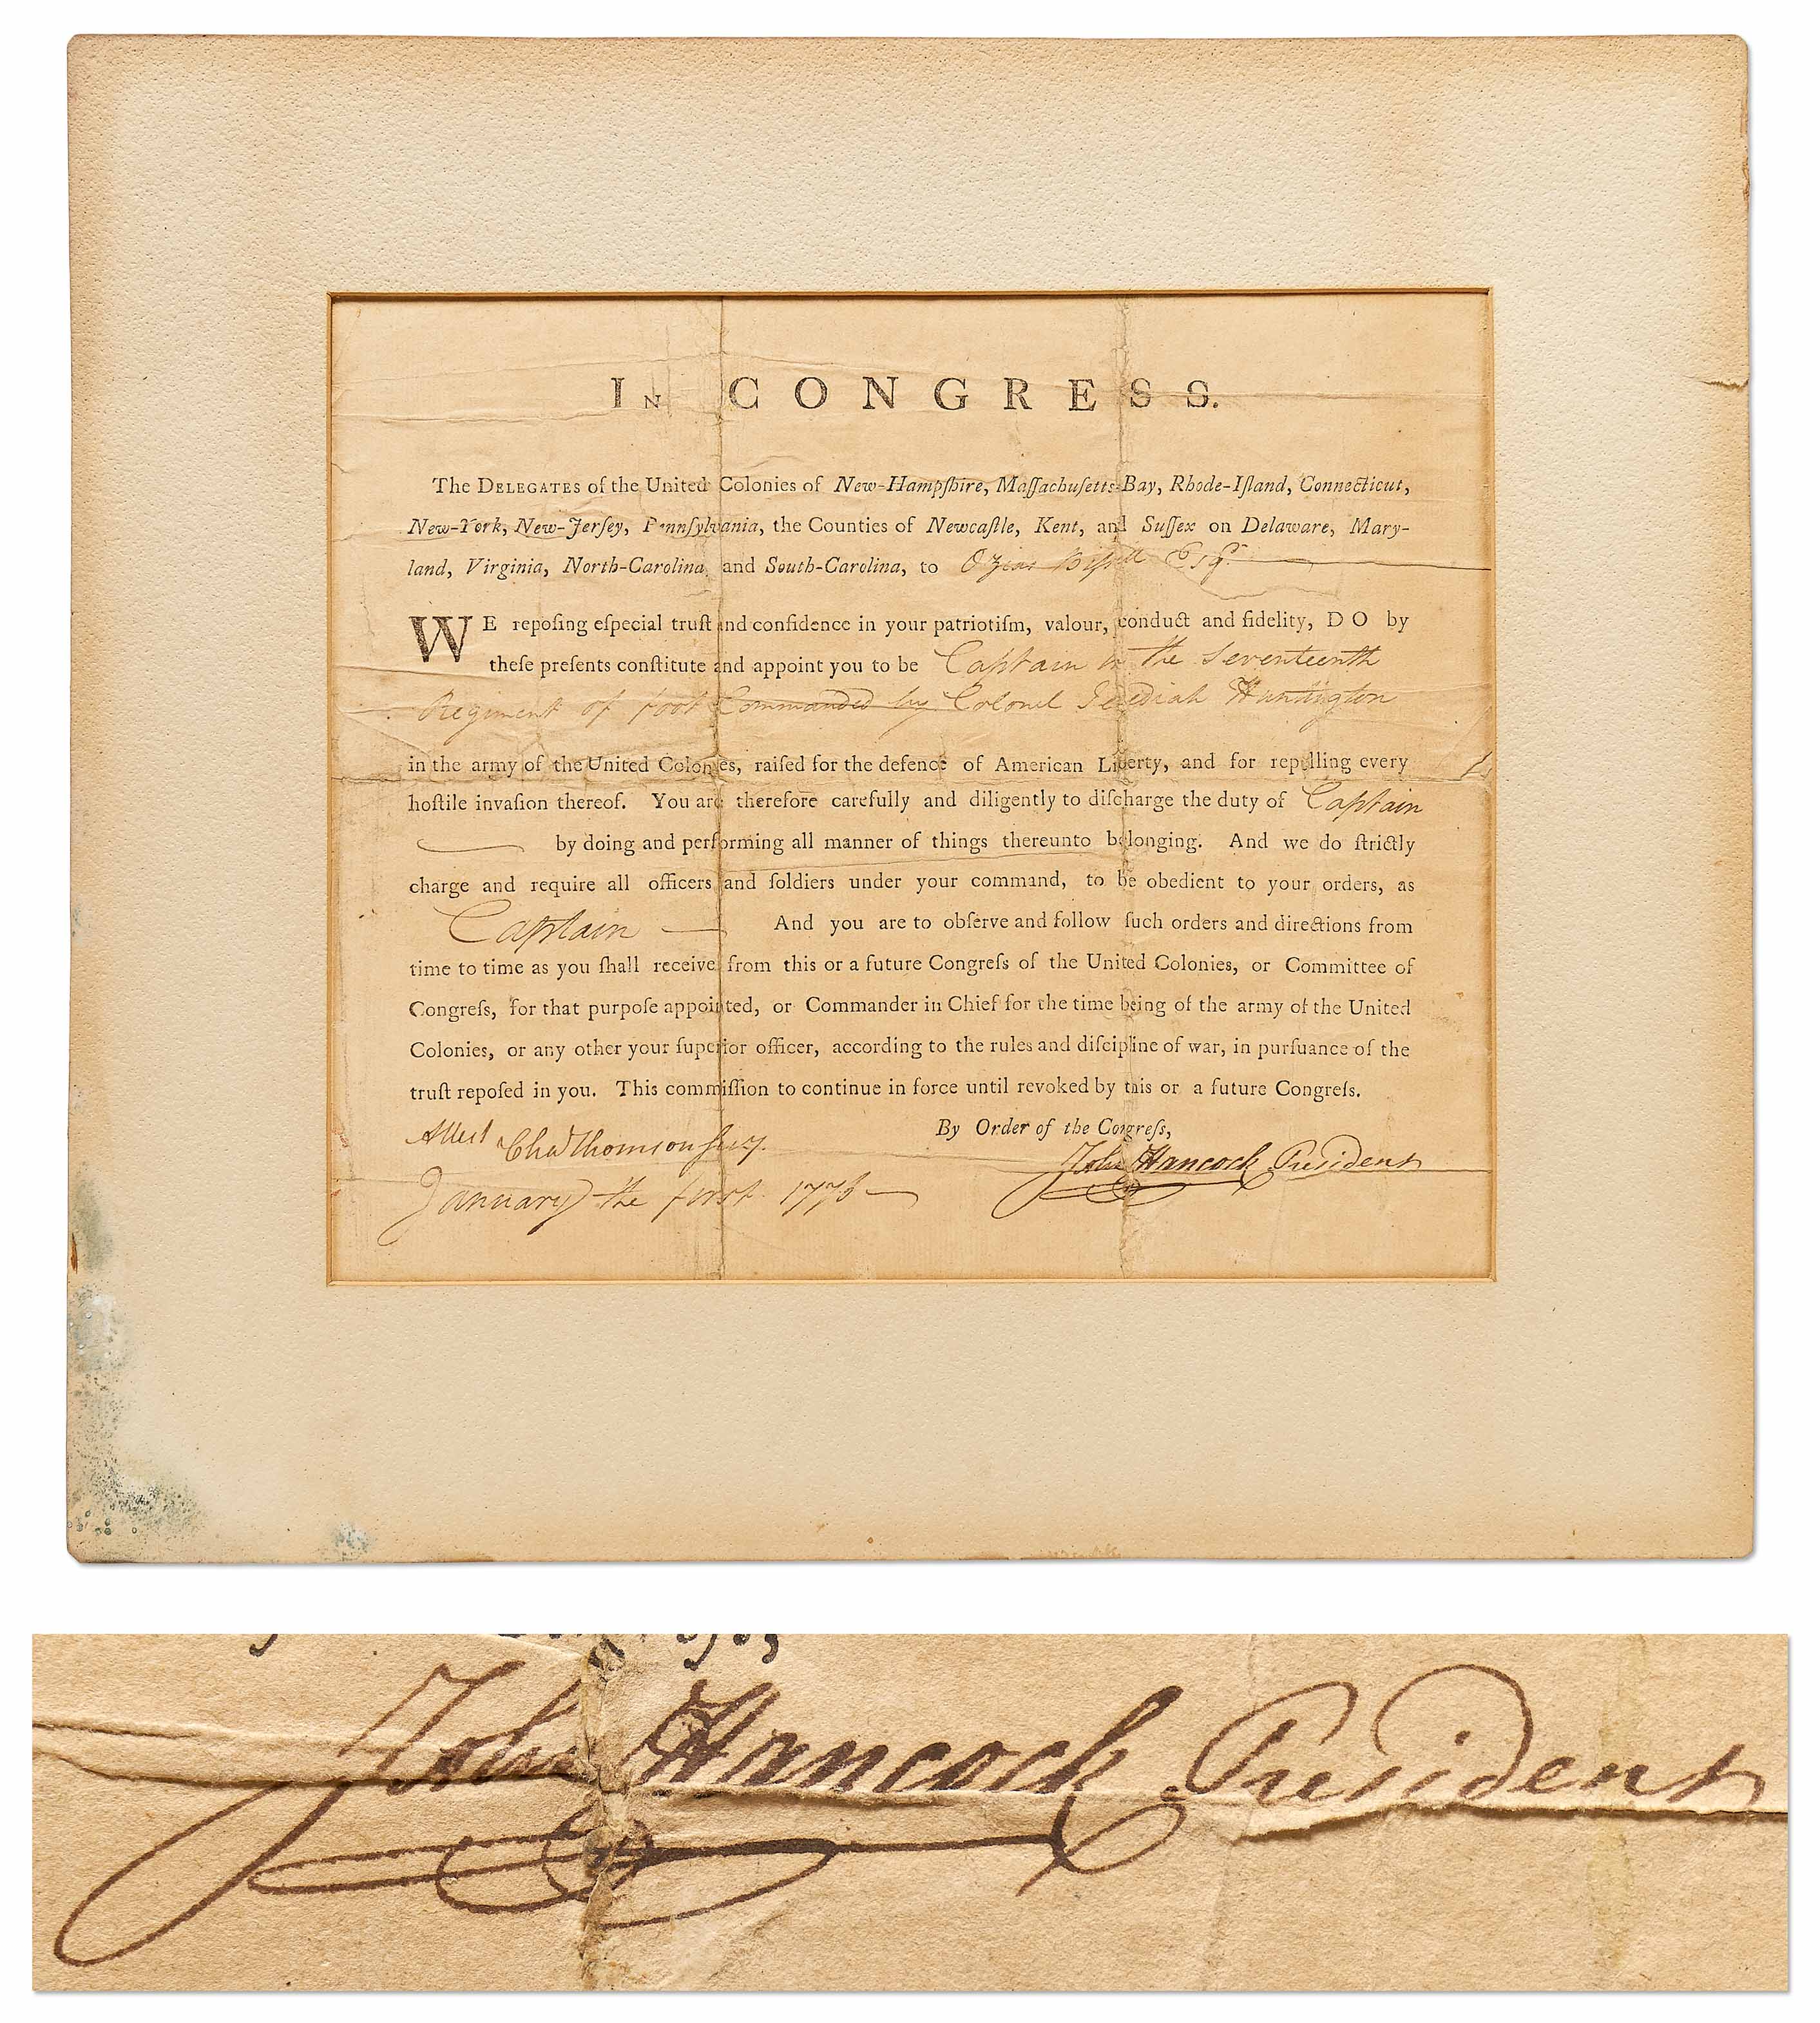 IN CONGRESS.
The DELEGATES of the United Colonies of New-Hampſhire, Maſſachuſetts-Bay, Rhode-Iſland, Connecticut,
New-York, New-Jerſey, Pennſylvania, the Counties of Newcaſtle, Kent, and Suſſex on Delaware, Mary-
land, Virginia, North-Carolina, and South-Carolina, to Ozias Bissell Esqr.
WE repoſing eſpecial truſt and confidence in your patriotiſm, valour, conduct and fidelity, DO by
theſe preſents conſtitute and appoint you to be Captain in the Seventeenth
Regiment of foot Commanded by Colonel Jedediah Huntington
in the army of the United Colonies, raiſed for the defence of American Liberty, and for repelling every
hoſtile invaſion thereof. You are therefore carefully and diligently to diſcharge the duty of Captain
by doing and performing all manner of things thereunto belonging. And we do ſtrictly
charge and require all officers and ſoldiers under your command, to be obedient to your orders, as
Captain And you are to obſerve and follow ſuch orders and directions from
time to time as you ſhall receive from this or a future Congreſs of the United Colonies, or Committee of
Congreſs, for that purpoſe appointed, or Commander in Chief for the time being of the army of the United
Colonies, or any other your ſuperior officer, according to the rules and diſcipline of war, in purſuance of the
truſt repoſed in you. This commiſſion to continue in force until revoked by this or a future Congreſs.
By Order of the Congreſs,
Attest Chas Thomson secy.
John Hancock President
January the first 1776
John Hancock President